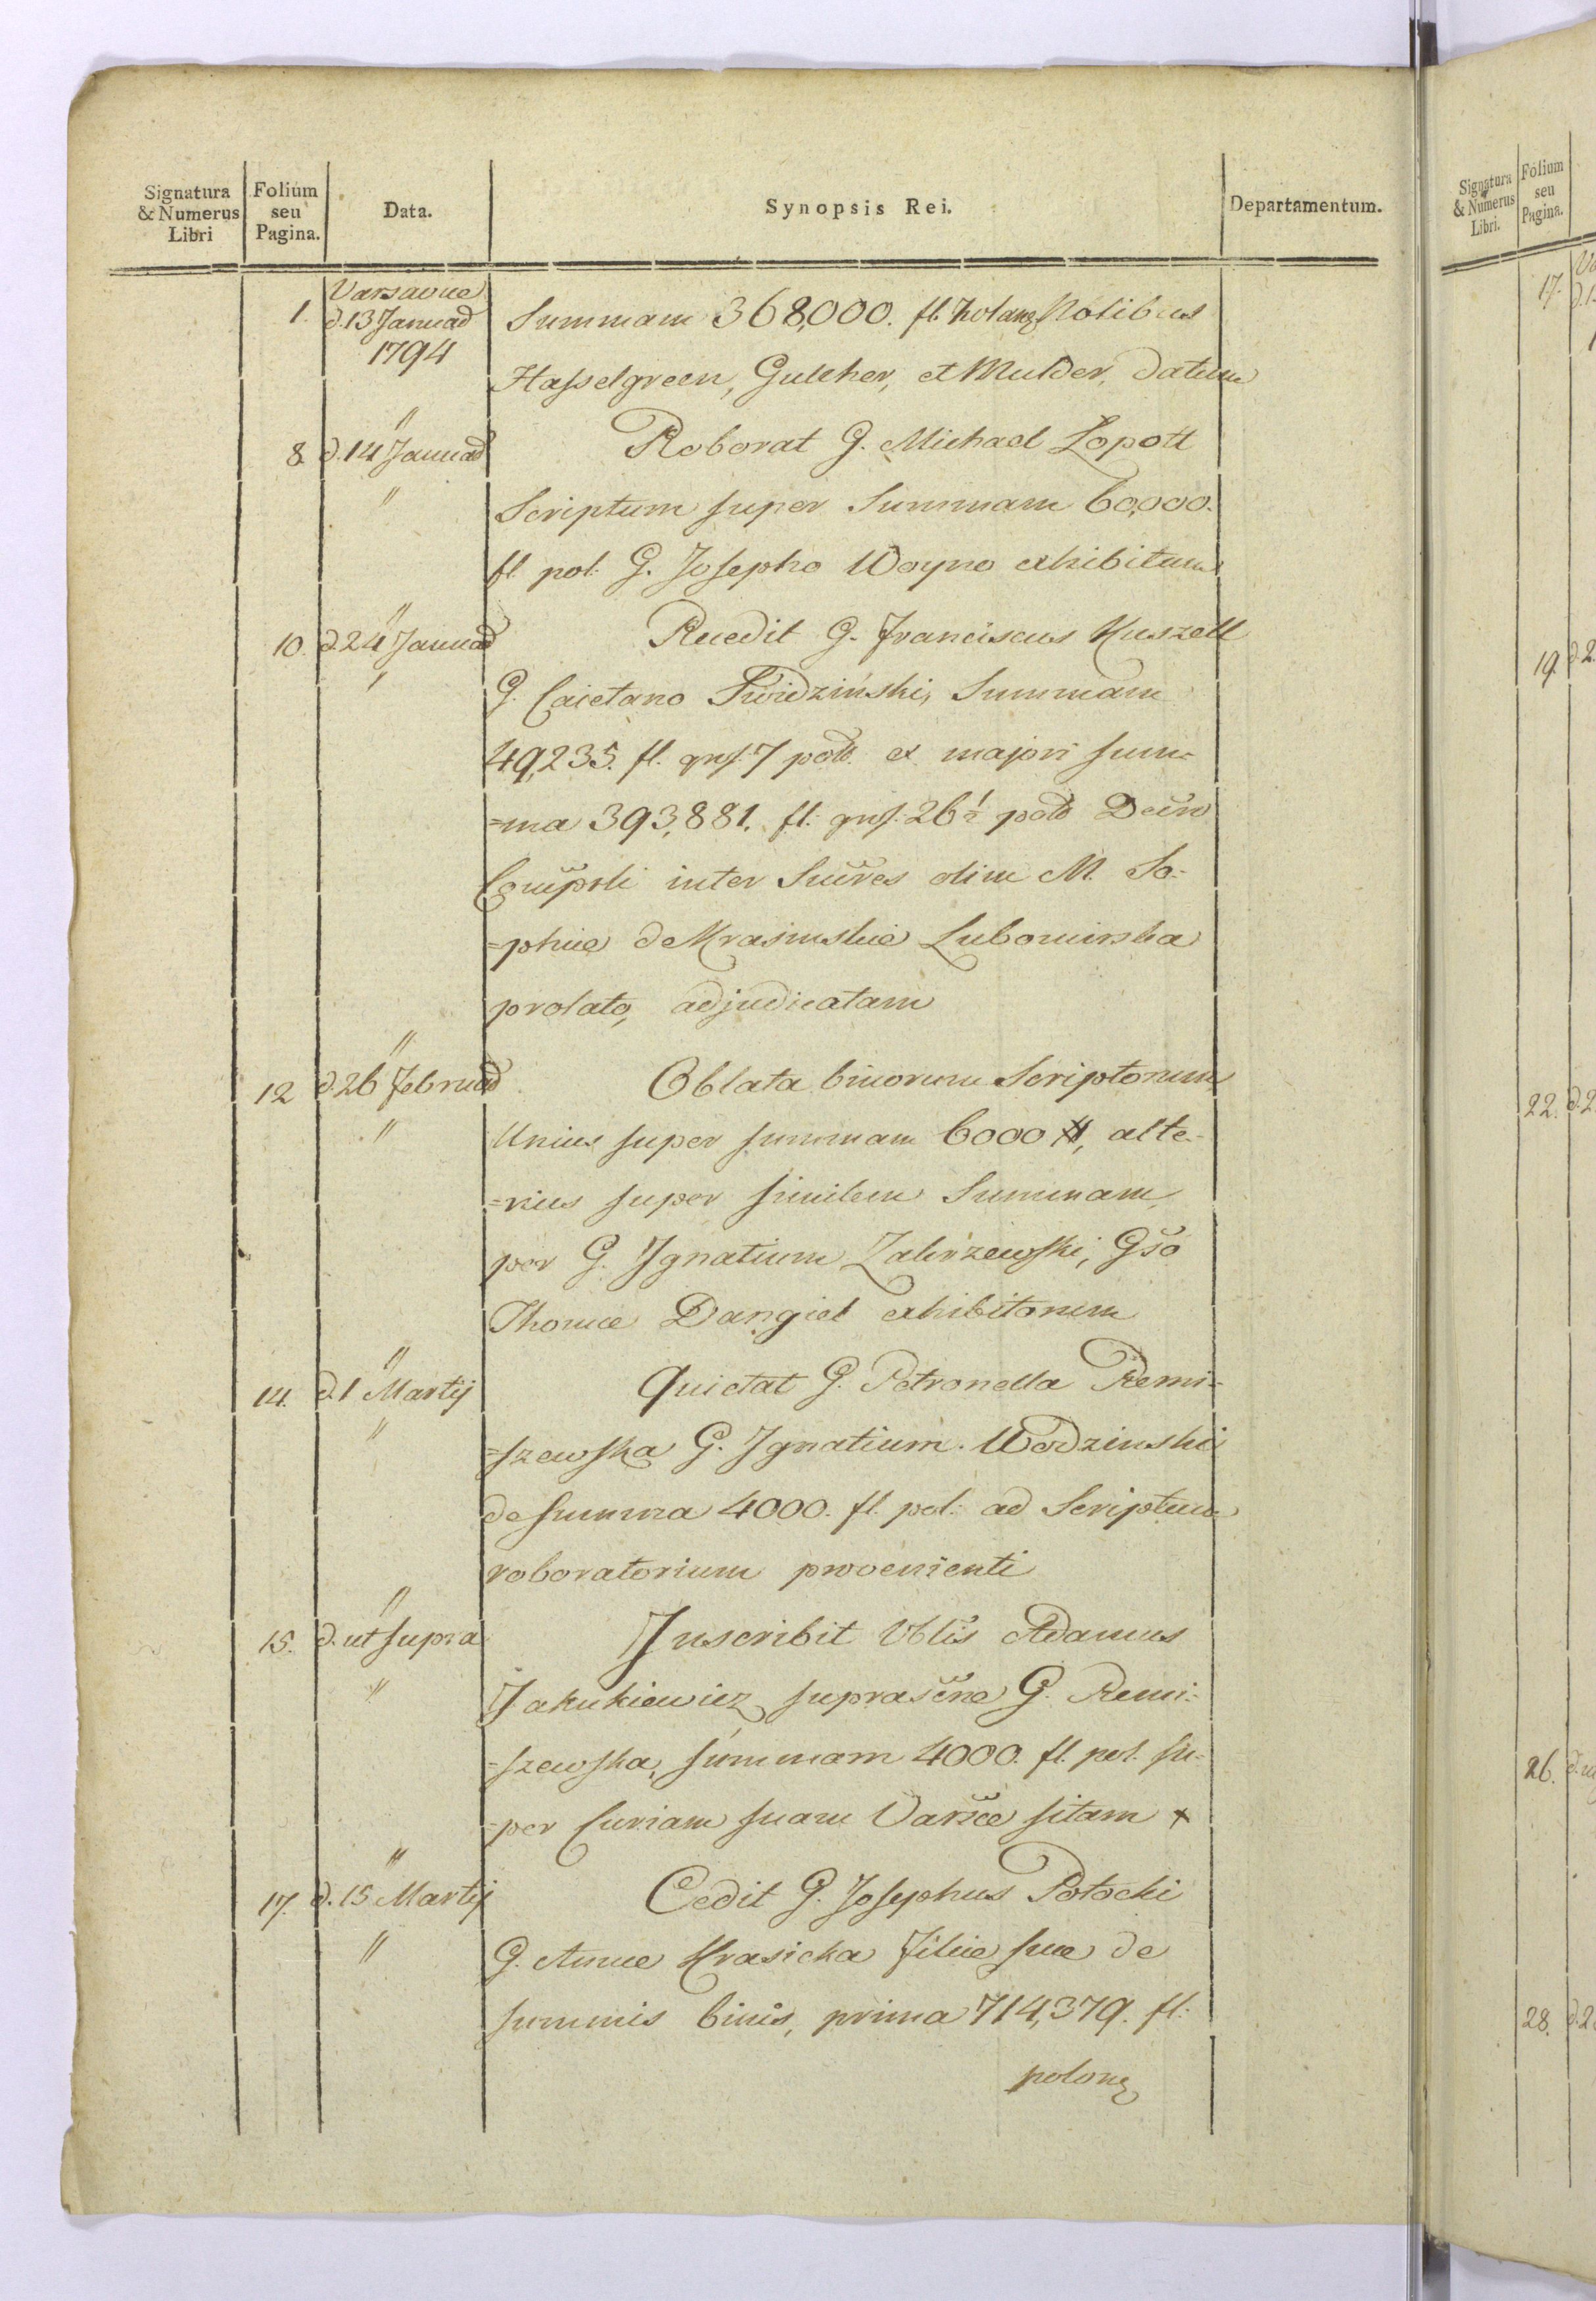 Signatura & Numerus Libri
Folium seu Pagina.
Data.
Synopsis Rei.
Departamentum.
Varsaviae
1. d. 13 Januarÿ Summam 368,000. fl. holand Nobilibus
1794
Hasselgreen, Gulcher, et Mulder, datum
"
8. d. 14 Januarÿ Roborat G. Michael Lopott
" Scriptum super Summam 60,000.
fl pol: G. Josepho Woyno exhibitum
"
10. d. 24 Januarÿ Recedit G. Franciscus Kuszell
" G. Caietano Swidziński, Summam
49,235. fl. grs. 7 poll. ex majori sum-
=ma 393,881. fl: grs. 26½ poll
inter olim M. So-
=phiae de Krasinskie Lubomirska
prolato, adjudicatam
"
12 d. 26 Februarÿ Oblata binorum Scriptorum
" Unius super summam 6000 #, alte-
=rius super similem Summam,
per G. Ignatium Zakrzewski, Gso
Thomae Dangiel exhibitorum
"
14. d. 1 Martij Quietat G. Petronella Remi-
" =szewska G. Ignatium Wodzinski
de summa 4000. fl. pol: ad Scriptum
roboratorium provenienti
"
15. d. ut supra Inscribit Nblis Adamus
" Jakukiewicz suprascrae G. Remi-
=szewska, summam 4000. fl. pol. su-
=per Curiam suam Varsce sitam +
"
17. d. 15 Martij Cedit G. Josephus Potocki
" G. Annae Krasicka Filiae suae de
summis binis, prima 714,379. fl:
polon
Signatura & Numerus Libri.
Folium seu Pagina.
17.
19.
22.
26.
28.